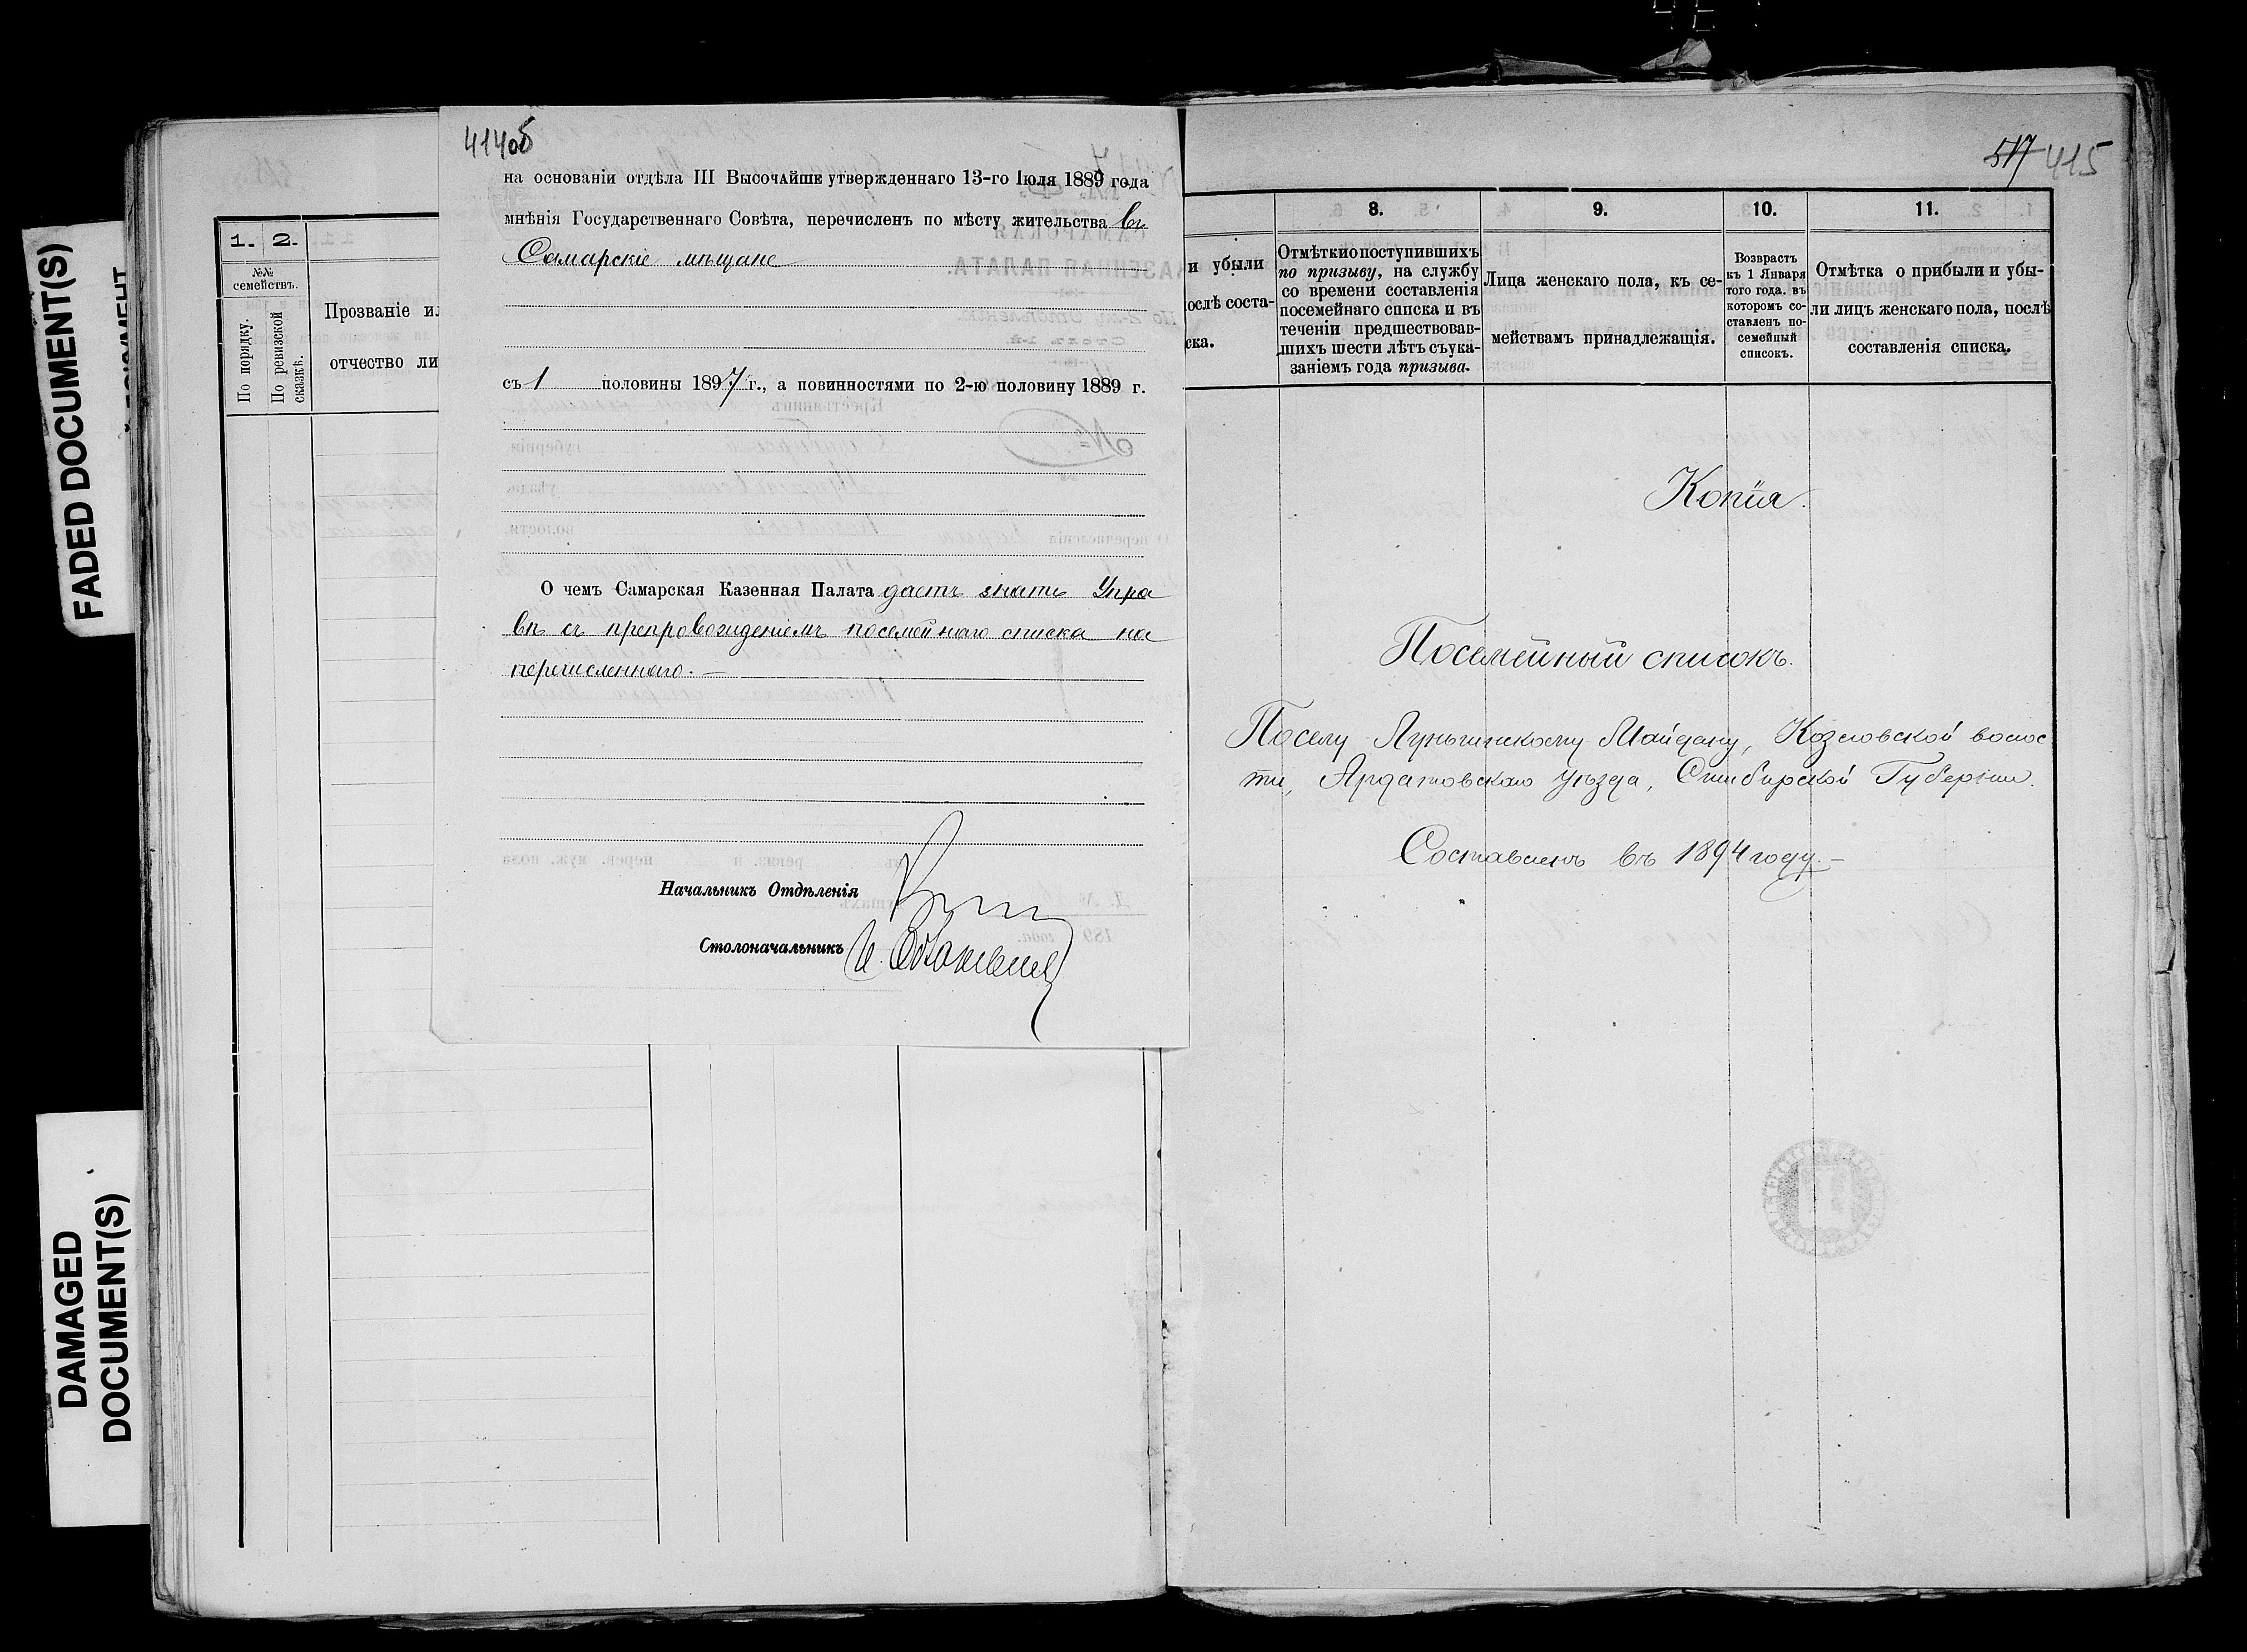 FADED DOCUMENT(S)
DAMAGED
DOCUMENT(S)
1. 2.
№№
семействъ.
По порядку.
По ревизской
сказкѣ.
Прозваніе ил
отчество ли
414об
на основаніи отдѣла III Высочайше утвержденнаго 13-го Іюля 1889 года
мнѣнія Государственнаго Совѣта, перечисленъ по мѣсту жительства въ
Самарскіе мѣщане
съ 1 половины 1897 г., а повинностями по 2-ю половину 1889 г.
О чемъ Самарская Казенная Палата даетъ знать Упра
вѣ съ препровожденіемъ посемейнаго списка на
перечисленнаго.—
Начальникъ Отдѣленія
Столоначальникъ
517 415
8. 9. 10. 11.
и убыли
ослѣ соста-
ска.
Отмѣтки о поступившихъ
по призыву, на службу
со времени составленія
посемейнаго списка и въ
теченіи предшествовав-
шихъ шести лѣтъ съ ука-
заніемъ года призыва.
Лица женскаго пола, къ се-
мействамъ принадлежащія.
Возврастъ
къ 1 Января
того года. въ
которомъ со-
ставленъ по-
семейный
списокъ.
Отмѣтка о прибыли и убы-
ли лицъ женскаго пола, послѣ
составленія списка.
Копія.
Посемейный списокъ.
Поселу Луньгинскому Майдану, Козловской волос
ти, Ардатовскаго уѣзда, Симбирской Губерніи.
Составленъ въ 1894 году.—